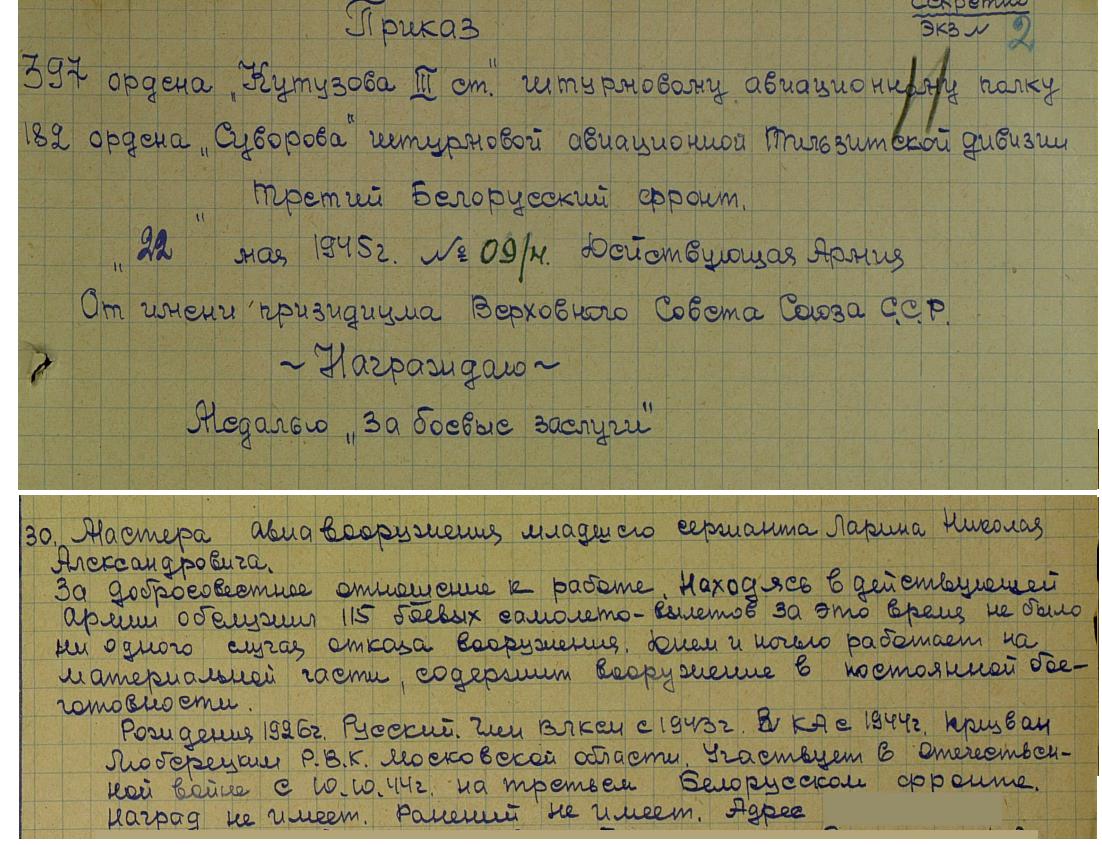 Секретно
Экз N 2
Приказ
397 ордена „Кутузова III ст." штурмовому авиационному полку
182 ордена „Суворова" штурмовой авиационной Тильзитской дивизии
Третий Белорусский фронт.
„22" мая 1945г. № 09/н. Действующая Армия
От имени призидиума Верховного Совета Союза С.С.Р.
~Награждаю~
Медалью „За боевые заслуги"
30. Мастера авиавооружения младшего сержанта Ларина Николая
Александровича.
За добросовестное отношение к работе. Находясь в действующей
армии обслужил 115 боевых самолето-вылетов за это время не было
ни одного случая отказа вооружения. Днем и ночью работает на
материальной части, содержит вооружение в постоянной бое-
готовности.
Рождения 1926г. Русский. Член ВЛКСМ с 1943г. В КА с 1944г. призван
Люберецким Р.В.К. Московской области. Участвует в отечествен-
ной войне с 10.10.44г. на третьем Белорусском фронте.
Наград не имеет. Ранений не имеет. Адрес